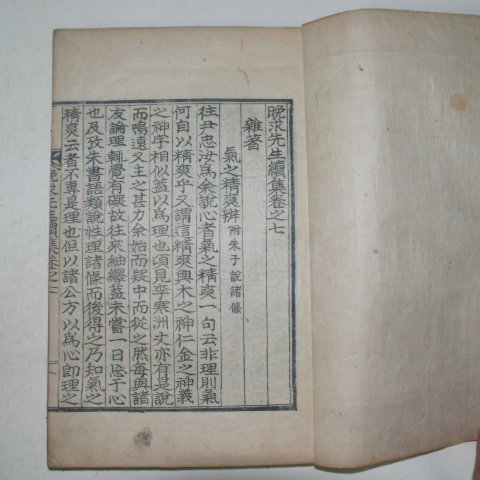 晩求先生續集卷之七
雜著
氣之精爽辨附朱子說諸條
往尹忠汝爲余說心者氣之精爽一句云非理則氣
何自以精爽乎又謂這精爽與木之神仁金之神義
之神字相似蓋以爲理也頃見李寒洲丈亦有是說
而鳴遠又主之甚力余始而疑中而從之然每與諸
友論理輒覺有礙故往來紬繹蓋未嘗一日忘于心
也及攷朱書語類說性理諸條而後得之乃知氣之
精爽云者不專是理也但以諸公方以爲心卽理之
晩求先生續集卷之七